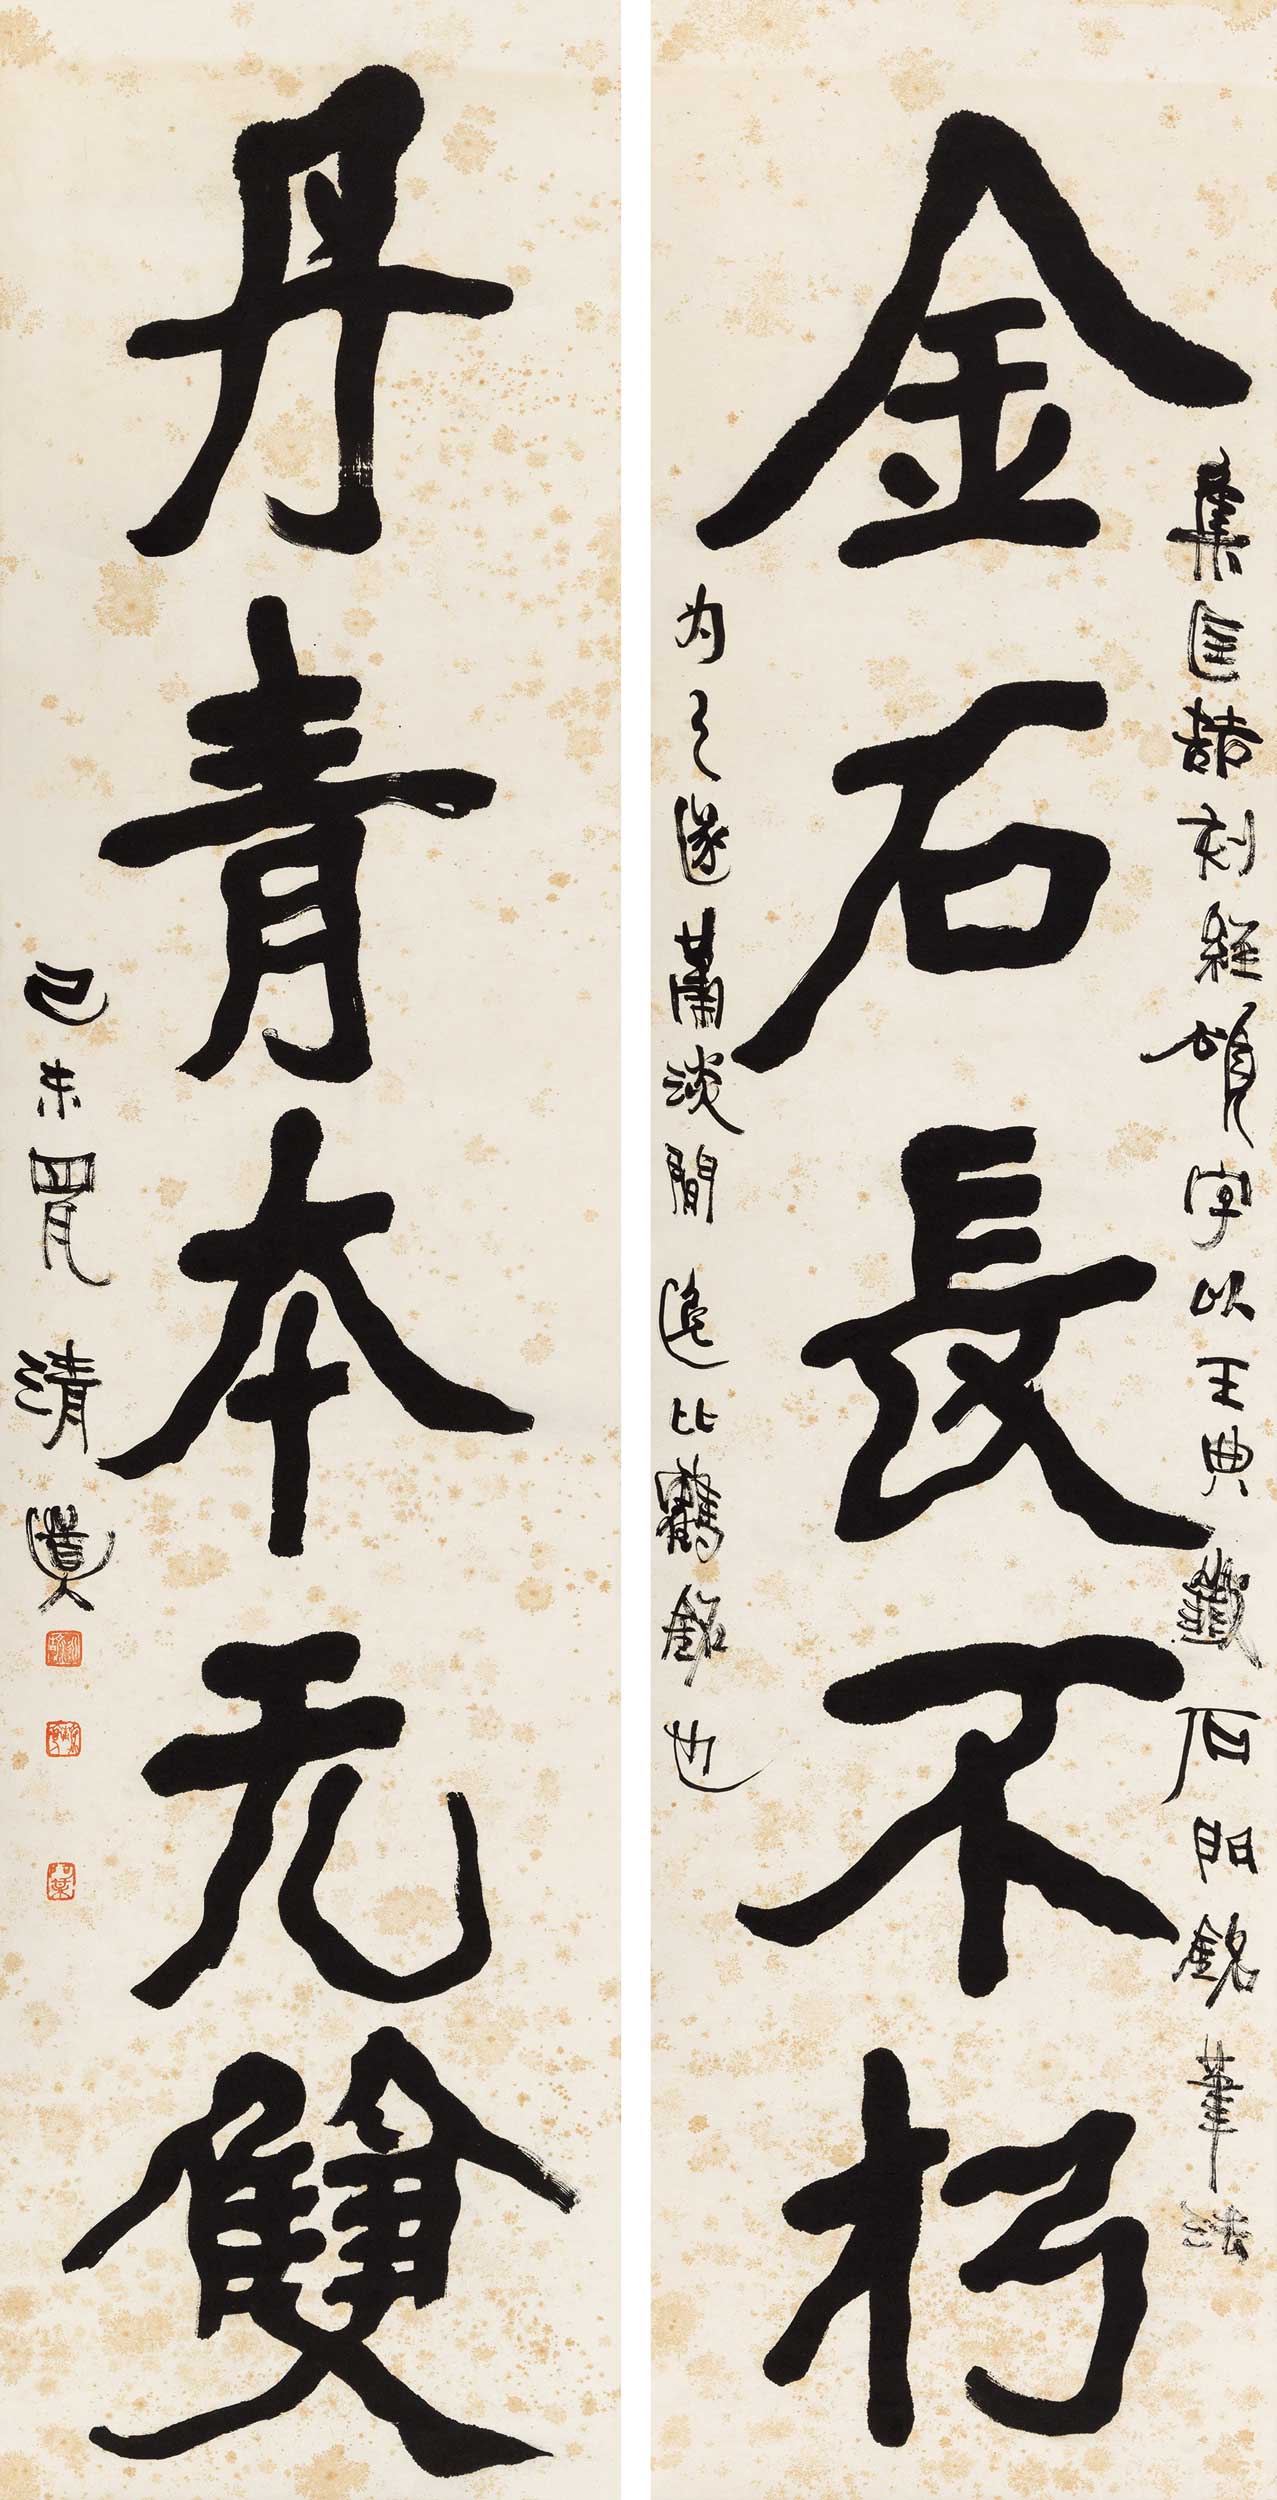 金石長不朽
集匡喆刻經頌字以王典籤石門銘筆法
为之邃蕭淡閒遠比鶴銘也
丹青本无雙
己未四月 清道人